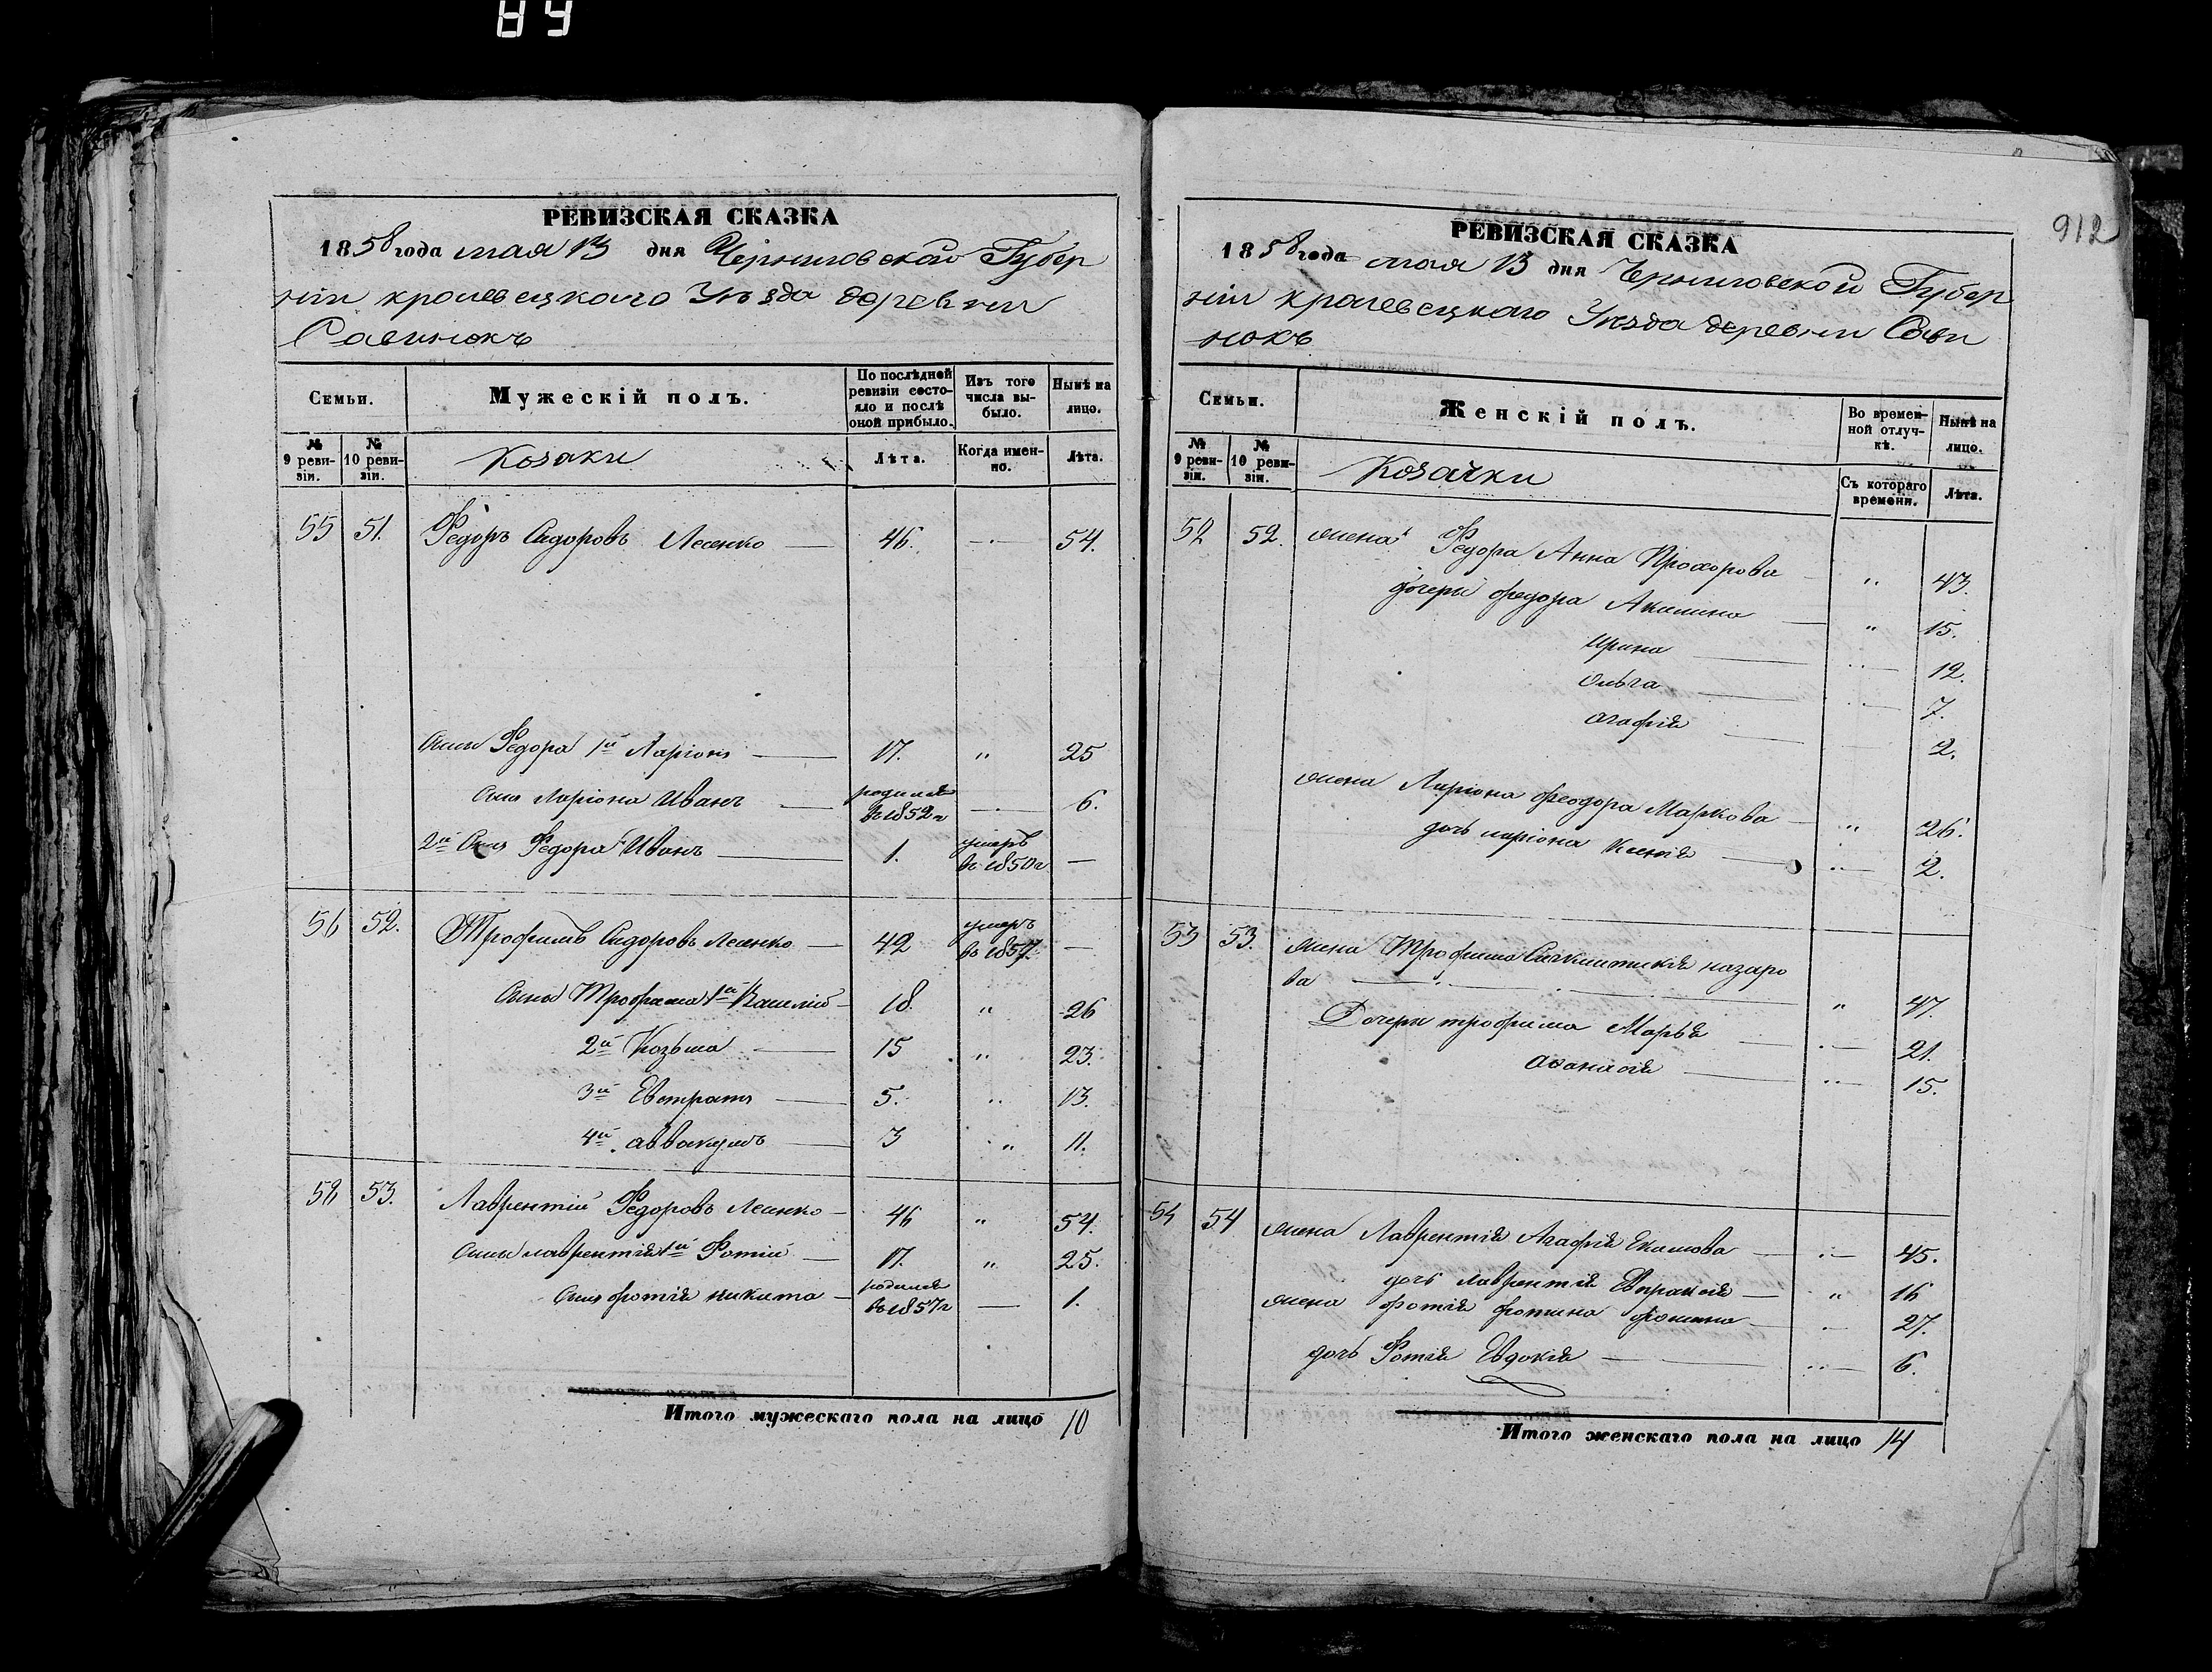 89
РЕВИЗСКАЯ СКАЗКА
1858 года мая 13 дня Черниговской Губер
ніи кролевецкаго Уѣзда деревни
Савинокъ
Семьи.
Мужескій полъ.
По послѣдней ревизіи состояло и послѣ оной прибыло.
Изъ того числа выбыло.
Нынѣ на лицо.
№ 9 ревизіи.
№ 10 ревизіи.
Козаки
Лѣта.
Когда именно.
Лѣта.
55 51. Федоръ Сидоровъ Лесенко — 46. — 54.
Сыны Федора 1й Ларіонъ — 17. „ 25
Сынъ Ларіона Иванъ — родился въ 1852г — 6.
2й Сынъ Федора Иванъ — 1. умеръ въ 1850г —
56 52. Трофимъ Сидоровъ Лесенко — 42 умеръ въ 1857. —
Сыны Трофима 1й Василій — 18. „ 26
2й Козьма — 15 „ 23.
3й Евстратъ — 5. „ 13.
4й аввакумъ — 3 „ 11.
58 53. Лаврентій Федоровъ Лесенко — 46 „ 54.
Сыны лаврентія 1й Фотій — 17. „ 25.
Сынъ фотія никита — родился въ 1857г — 1.
Итого мужескаго пола на лицо 10
912
РЕВИЗСКАЯ СКАЗКА
1858 года мая 13 дня Черниговской Губер
ніи кролевецкаго Уѣзда деревни Сави
нокъ
Семьи.
Женскій полъ.
Во временной отлучкѣ.
Нынѣ на лицо.
№ 9 ревизіи.
№ 10 ревизіи.
Козачки
Съ котораго времени.
Лѣта.
52 52. жена Федора Анна Прохорова — „ 43.
дочери федора Акилина — „ 15.
Ирина — „ 12.
Ольга — „ 7.
агафія — 2.
жена Ларіона феодора Маркова — „ 26.
дочь ларіона Ксенія — „ 2.
53 53. жена Трофима назаро
ва — „ 47.
Дочери трофима Марья — „ 21.
афанасія — „ 15.
54 54 жена Лаврентія Агафія Екимова — „ 45.
дочь лаврентія Евпраксія — „ 16
жена фотія фотина фомина — 27.
дочь Фотія Евдокія — „ 6.
Итого женскаго пола на лицо 14